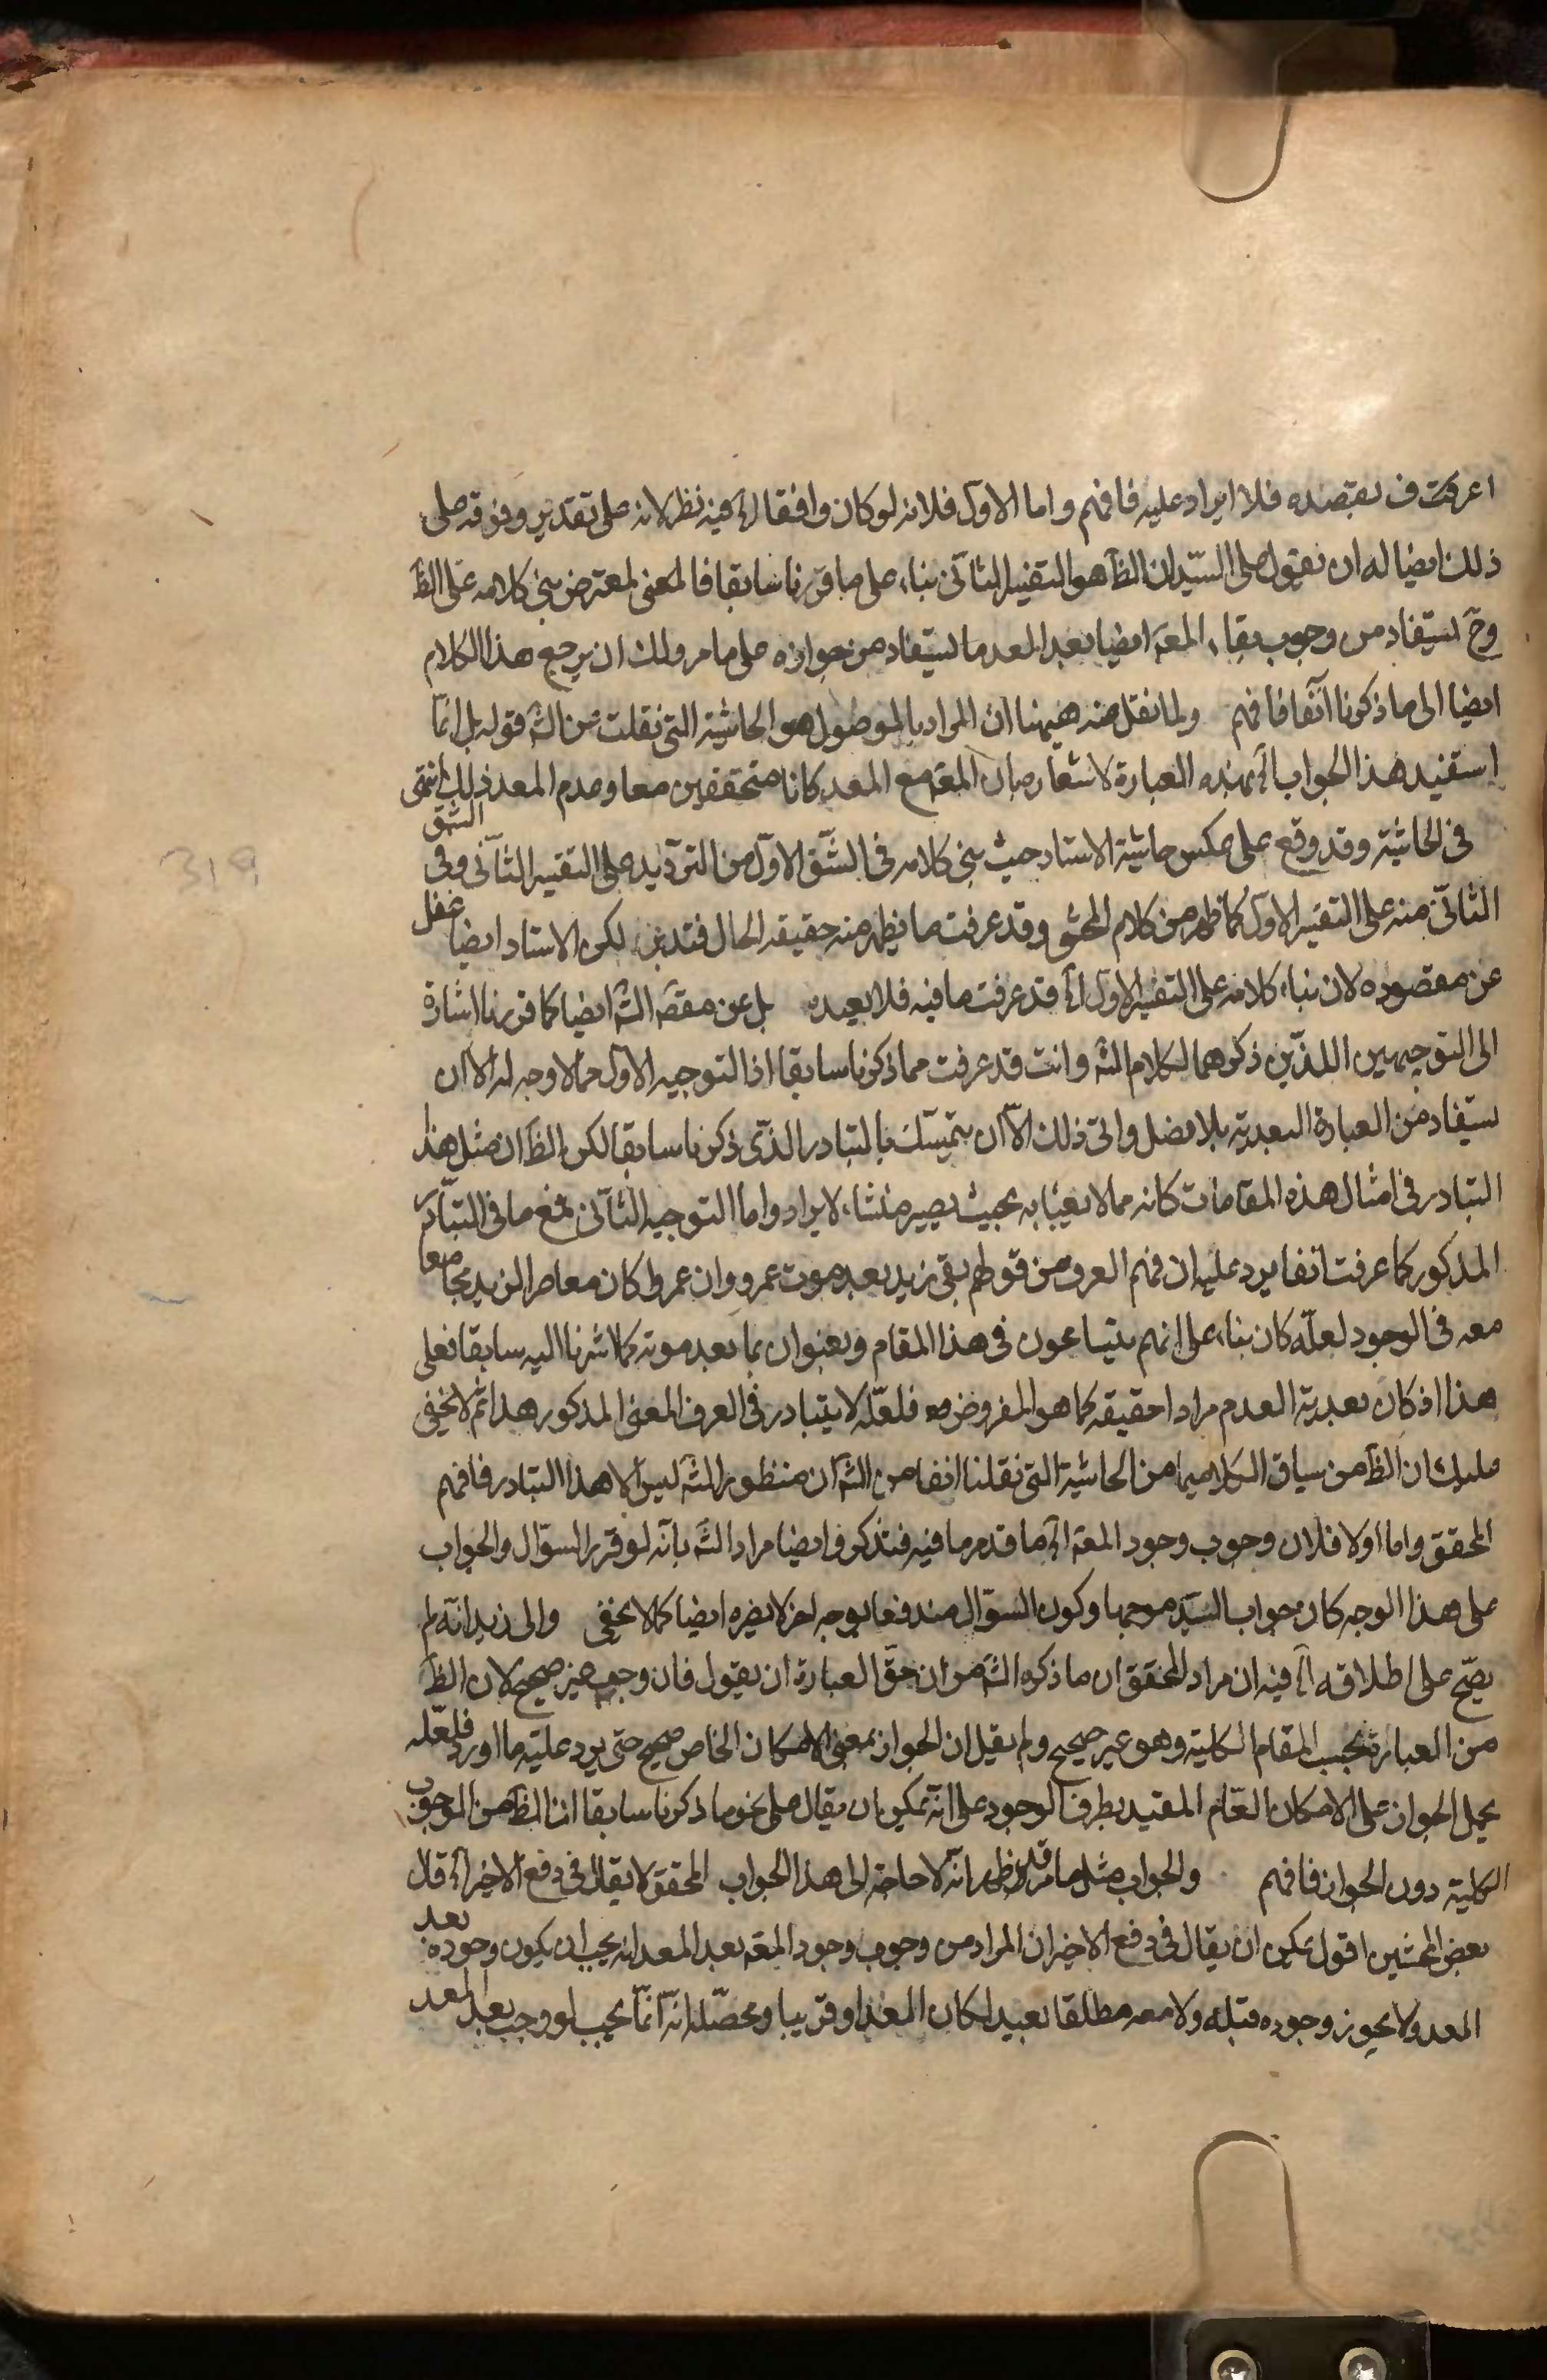 اعرفت ف بقصده فلا ايراد عليه فافهم واما الاول فلانه لو كان وافقا الخ فيه نظر لانه على تقدير وفوقه على
ذلك ايضا له ان يقول على السيد ان الظ هو التفسير الثاني بناء على ما قررنا سابقا فالمعنى لمعترض بنى كلامه على الظ
وح يستفاد من وجوب بقاء المعة ايضا بعد المعد ما يستفاد من جوازه على ما مر ولك ان يرجع هذا الكلام
ايضا الى ما ذكرنا آنفا فافهم ولما نقل منه ههنا ان المراد بالموصول هو الحاشية التي نقلت عن الش قوله بل انما
استفيد هذا الجواب الخ بهذه العبارة لاشعار بان المعة مع المعد كانا متحققين معا وعدم المعد ذلك انتهى
في الحاشية وقد وقع على عكس حاشية الاستاد حيث بنى كلامه في الشق الاول من الترديد على التفسير الثاني وفي الشق
الثاني منه على التفسير الاول كما ظهر من كلام المحشي وقد عرفت ما يظهر منه حقيقة الحال فتدبر لكن الاستاد ايضا غفل
عن مقصوده لان بناء كلامه على التفسير الاول الخ قد عرفت ما فيه فلا بعيده بل عن مقصد الش ايضا كما قررنا اشارة
الى التوجيهين اللذين ذكرهما لكلام الش وانت قد عرفت مما ذكرنا سابقا اذ التوجيه الاول مما لا وجه له الا ان
يستفاد من العبارة البعدية بلا فصل واتى ذلك الا ان يتمسك بالتبادر الذي ذكرنا سابقا لكن الظ ان مثل هذا
التبادر في امثال هذه المقامات كانه مما لا يعبأ به بحيث يصير منشاء لايراد واما التوجيه الثاني فمع ما في التبادر
المذكور كما عرفت آنفا يرد عليه ان فهم العرف من قولهم بقى زيد بعد موت عمرو وان عمروا كان معاصرا لزيد مجامعا
معه في الوجود لعله كان بناء على انهم يتسامحون في هذا المقام ويعنون بما بعد موته كما اشرنا اليه سابقا فعلى
هذا اذ كان بعدية العدم مرادا حقيقة كما هو المفروض فلعله لا يتبادر في العرف المعنى المذكور هذا ثم لا يخفى
عليك ان الظ من سياق الكلام سيما من الحاشية التي نقلنا انفا من الش ان منظور الش ليس الا هذا التبادر فافهم
المحقق واما اولا فلان وجوب وجود المعة الخ ما قد مر ما فيه فتذكر وايضا مراد الش بانه لو قرر السؤال والجواب
على هذا الوجه كان جواب السيد موجها وكون السؤال مندفعا بوجه اخر لا يضره ايضا كما لا يخفى والى زيد انه لم
يصح على اطلاقه الخ فيه ان مراد المحقق ان ما ذكره الش من ان حق العبارة ان يقول فان وجب غير صحيح لان الظ
من العبارة بحسب المقام الكلية وهو غير صحيح ولم يقل ان الجواز بمعنى الامكان الخاص صحيح حتى يرد عليه ما اورد فلعله
يحمل الجواز على الامكان العام المقيد بطرف الوجود على انه يمكن ان يقال على نحو ما ذكرنا سابقا ان الظ من الوجوب
الكلية دون الجواز فافهم والجواب مثل ما مر قد ظهر انه لا حاجة الى هذا الجواب المحقق لا يقال في دفع الاخير الخ قال
بعض المحشين اقول يمكن ان يقال في دفع الاخير ان المراد من وجوب وجود المعة بعد المعد انه يجب ان يكون وجوده بعد
المعد ولا يجوز وجوده قبله ولا معه مطلقا بعيدا كان المعد او قريبا ومحصله انه انما يجب لو وجب بعد المعد
319